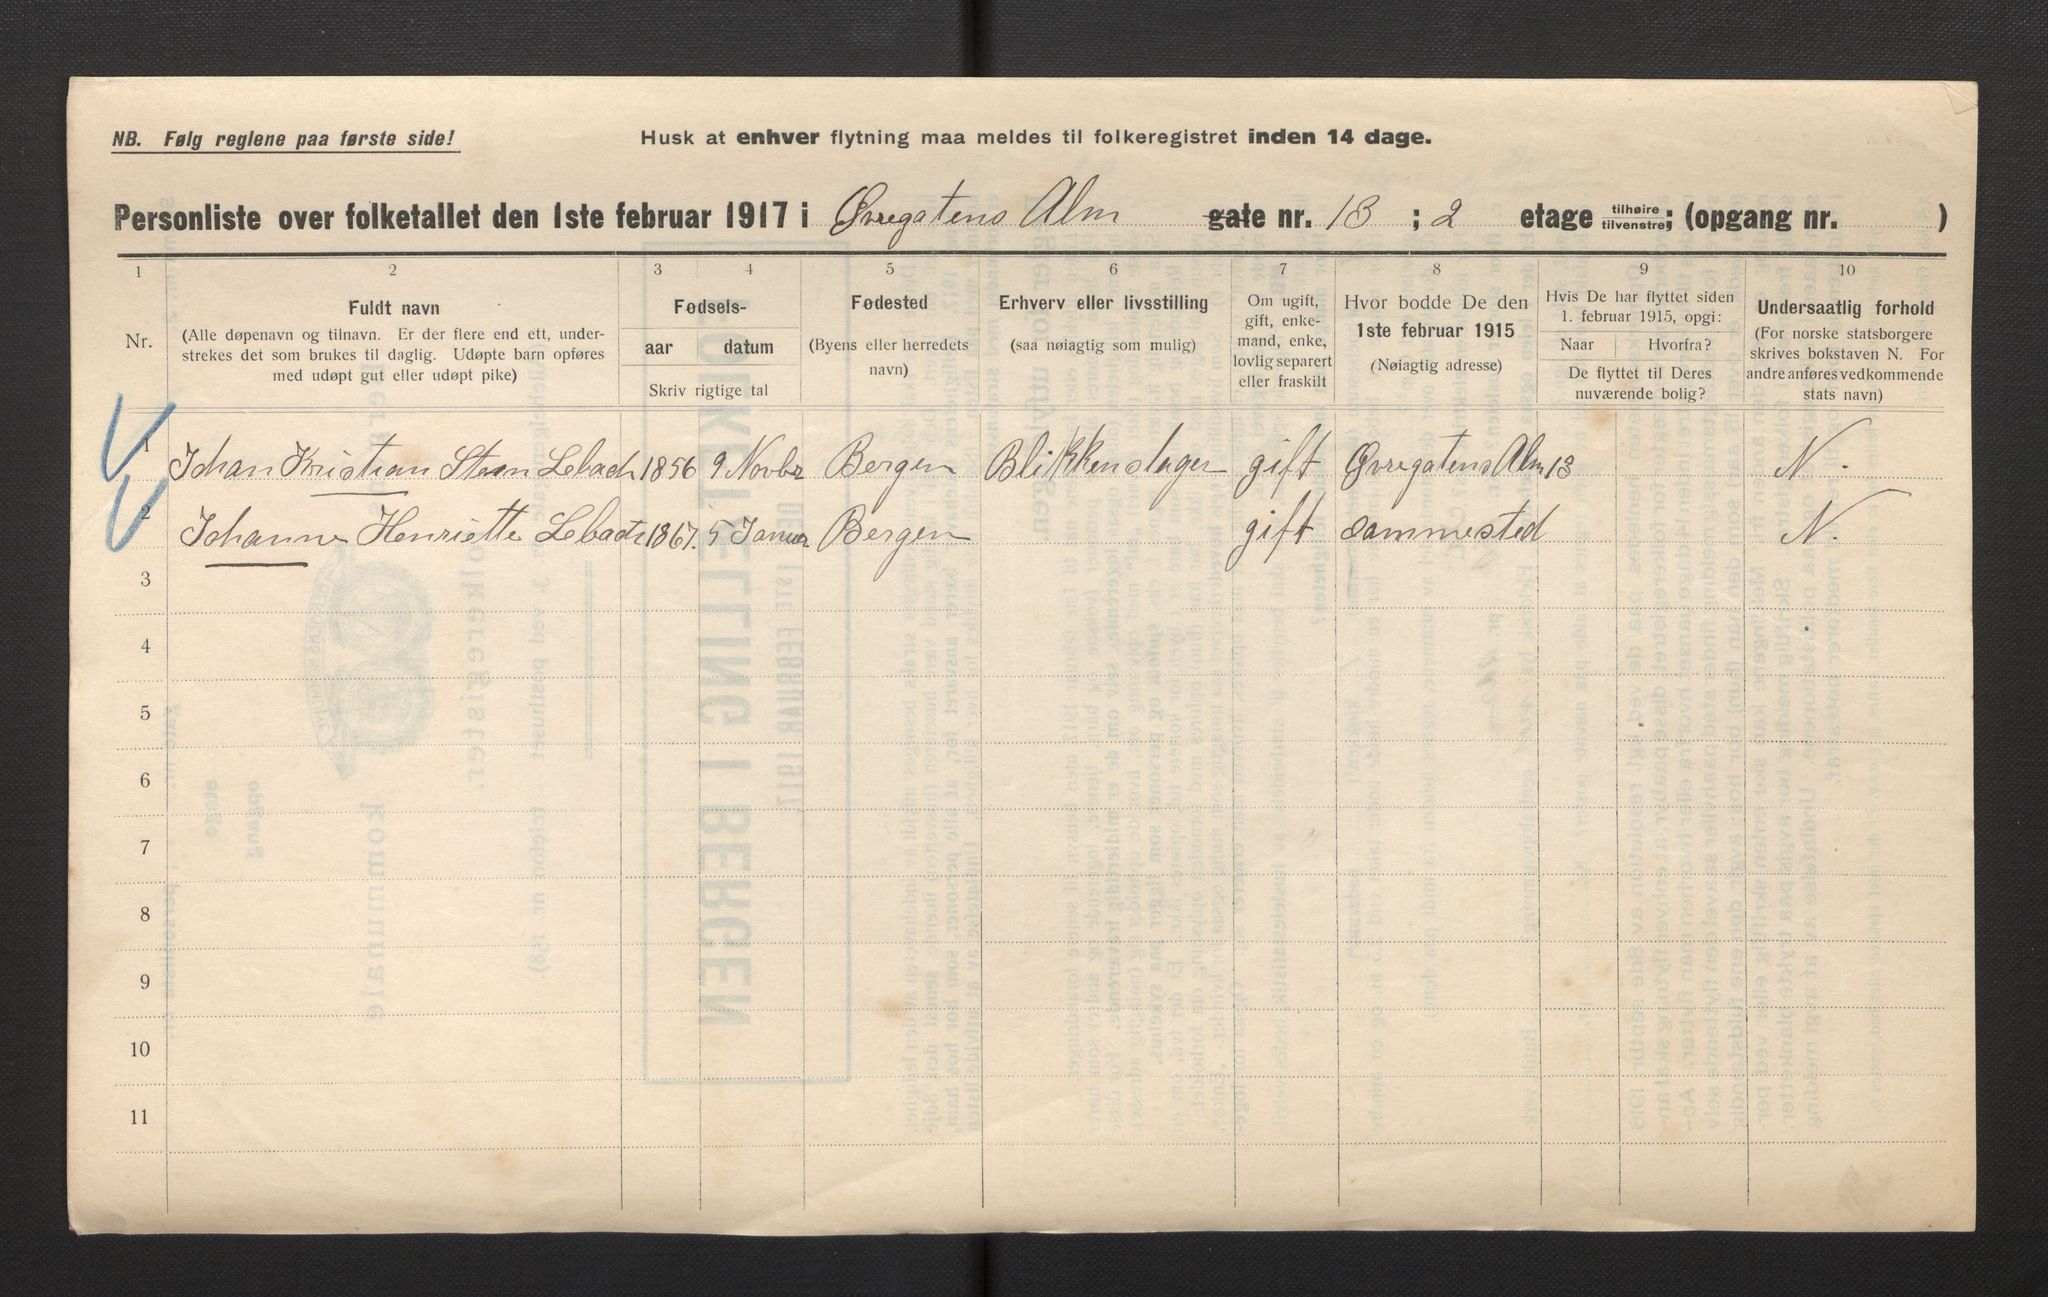 NB. Følg reglene paa første side!
Husk at enhver flytning maa meldes til folkeregistret inden 14 dage.
Personliste over folketallet den 1ste februar 1917 i Øvregatens Alm gate nr. 13 ; 2 etage tilhøire tilvenstre; (opgang nr. )
1 2 3 4 5 6 7 8 9 10
Nr.
Fuldt navn
(Alle døpenavn og tilnavn. Er der flere end ett, under-
strekes det som brukes til daglig. Udøpte barn opføres
med udøpt gut eller udøpt pike)
Fødsels-
aar datum
Skriv rigtige tal
Fødested
(Byens eller herredets
navn)
Erhverv eller livsstilling
(saa nøiagtig som mulig)
Om ugift,
gift, enke-
mand, enke,
lovlig separert
eller fraskilt
Hvor bodde De den
1ste februar 1915
(Nøiagtig adresse)
Hvis De har flyttet siden
1. februar 1915, opgi:
Naar Hvorfra?
De flyttet til Deres
nuværende bolig?
Undersaatlig forhold
(For norske statsborgere
skrives bokstaven N. For
andre anføres vedkommende
stats navn)
1 Johan Kristian Lebach 1856 9 Novbr Bergen Blikkenslager gift Øvregatens Alm 13 N.
2 Johanne Henriette Lebach 1867. 5 Januar Bergen gift sammested N.
3
4
5
6
7
8
9
10
11